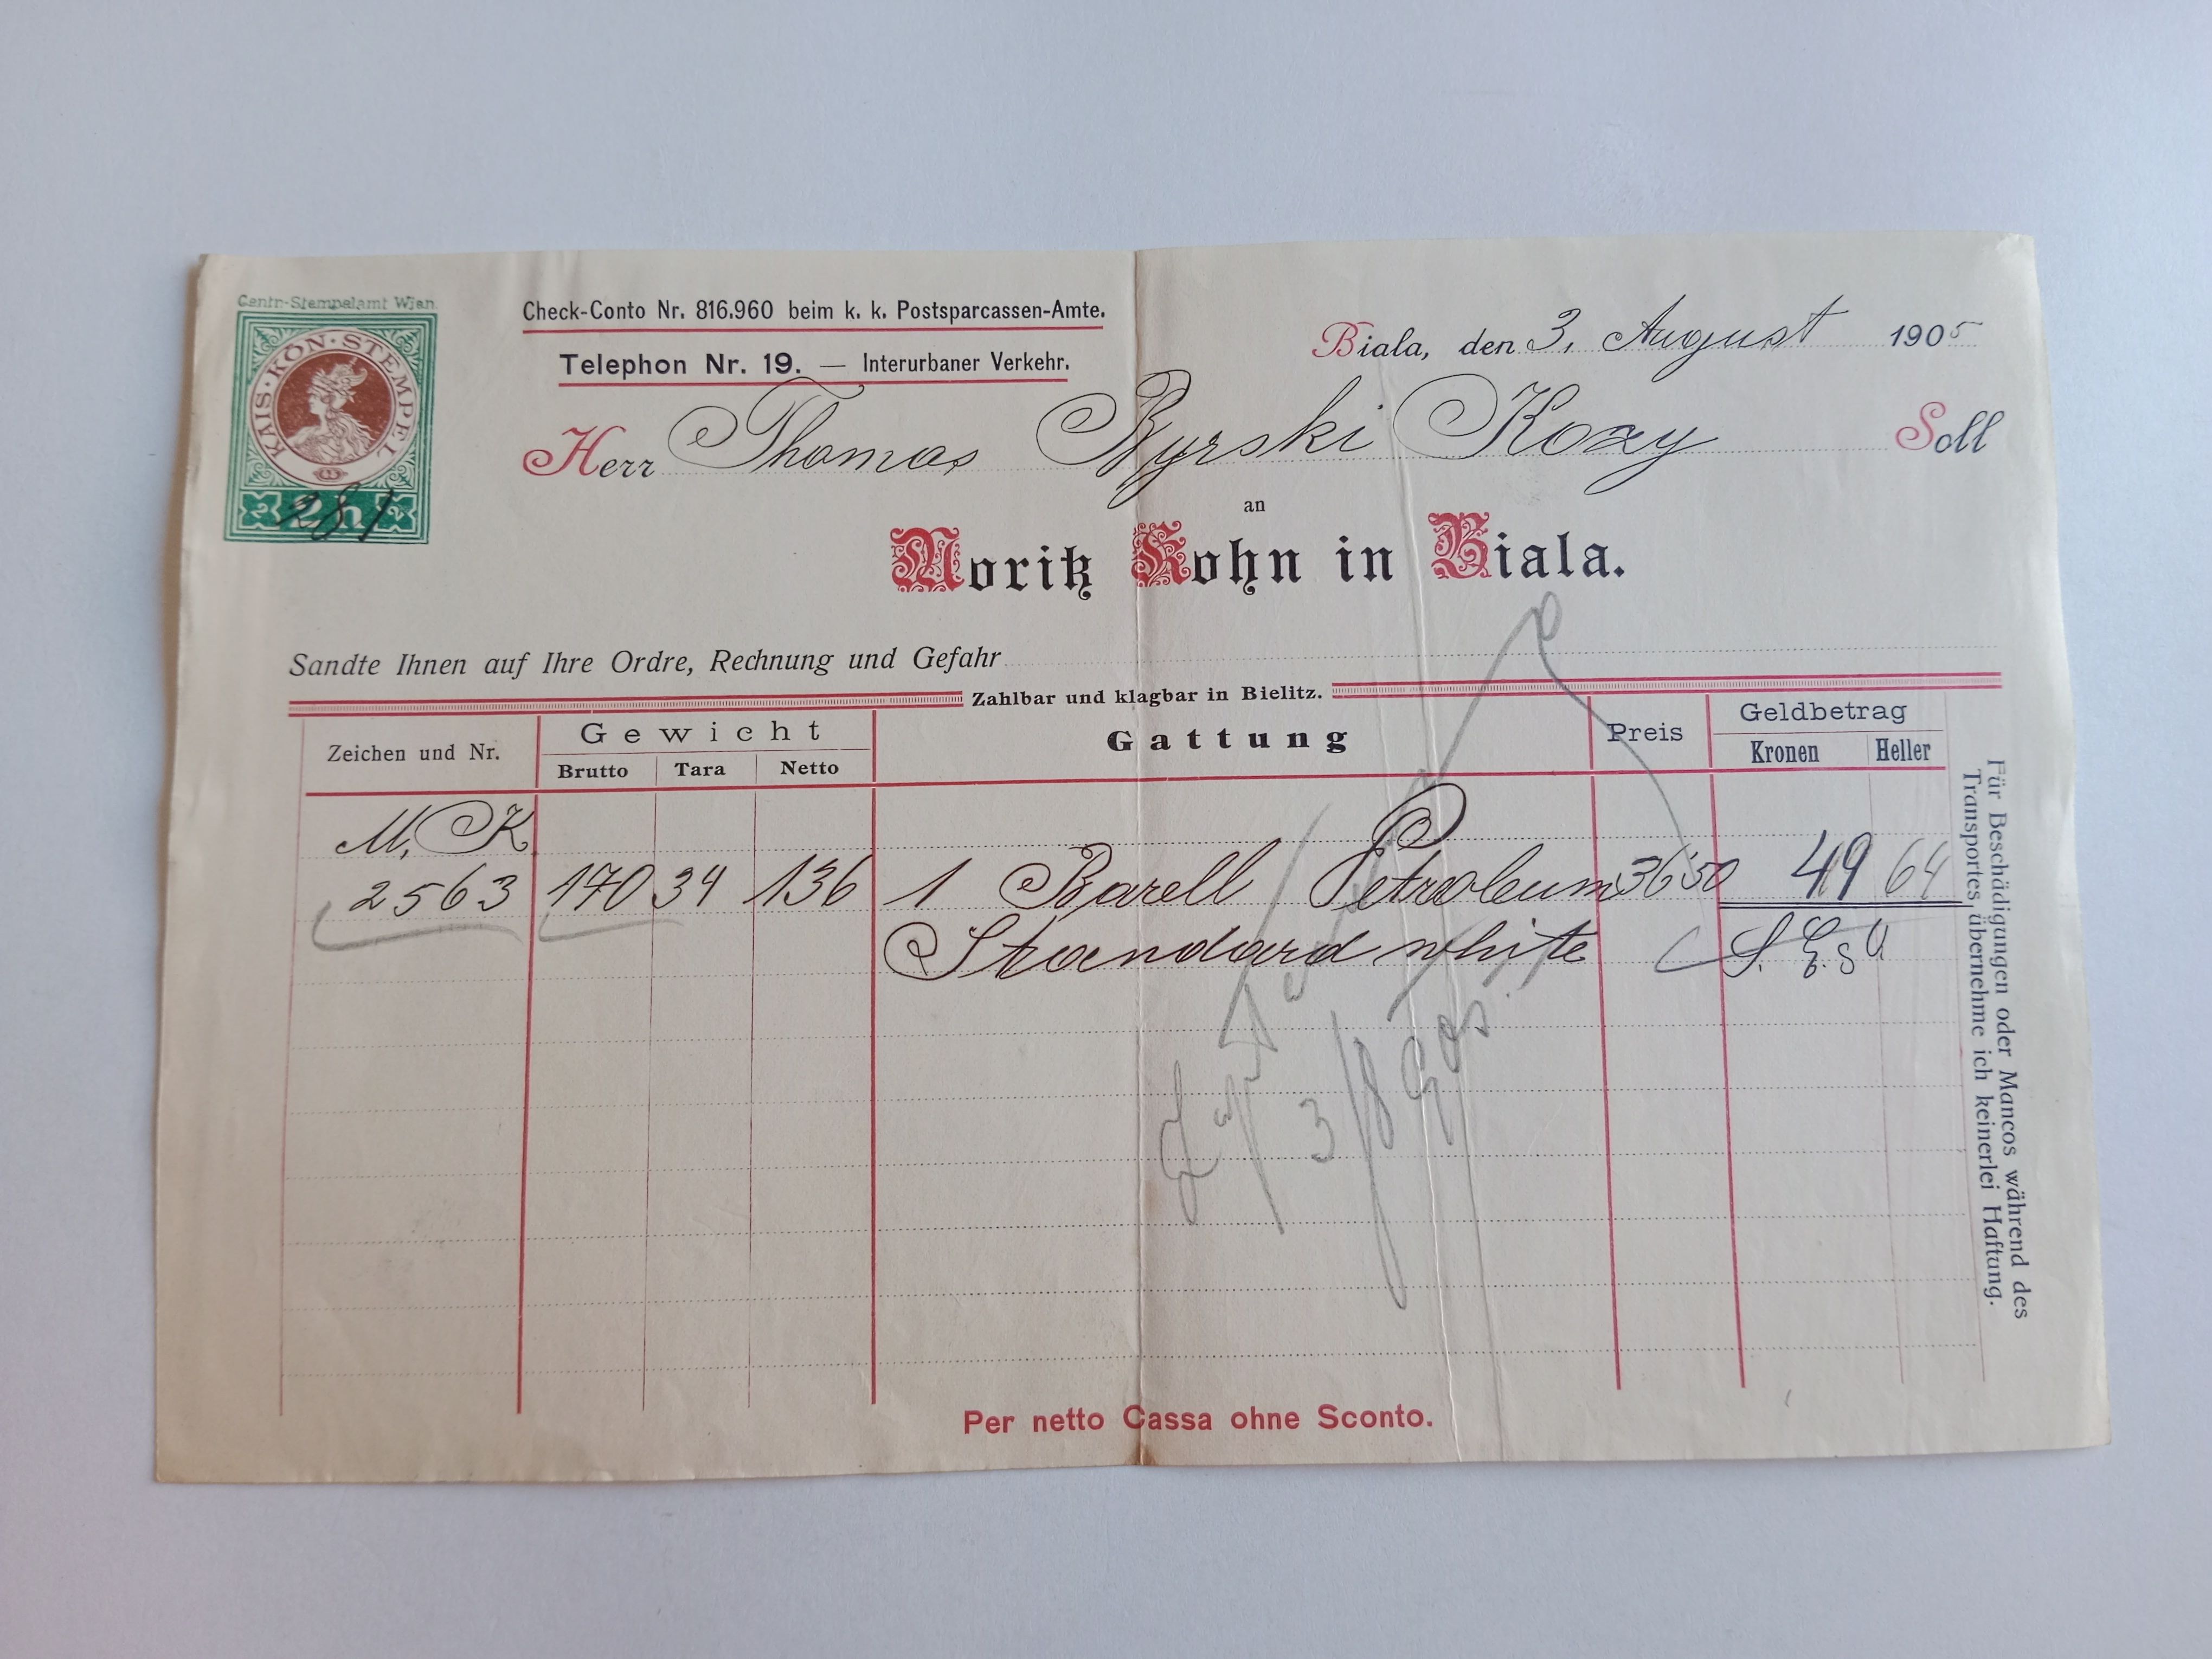 Centr-Stempelamt Wien
KAIS·KÖN·STEMPEL
2h
281
Check-Conto Nr. 816.960 beim k. k. Postsparcassen-Amte.
Telephon Nr. 19. — Interurbaner Verkehr.
Biala, den 3. August 1905
Herr Thomas Byrski Kozy Soll
an
Moritz Kohn in Biala.
Sandte Ihnen auf Ihre Ordre, Rechnung und Gefahr
Zahlbar und klagbar in Bielitz.
Zeichen und Nr. Gewicht Gattung Preis Geldbetrag
Brutto Tara Netto Kronen Heller
M. K.
2563 170 34 136 1 Barell Petroleum 36'50 49 64
Standard white S. E. & O.
3/8 905.
Für Beschädigungen oder Mancos während des
Transportes übernehme ich keinerlei Haftung.
Per netto Cassa ohne Sconto.